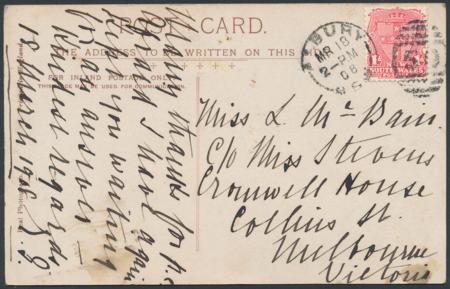 POST CARD.
THE ADDRESS TO BE WRITTEN ON THIS
FOR INLAND POSTAGE ONLY
THIS SPACE MAY BE USED FOR COMMUNICATION.
Many thanks for p.c.
I have again
kept you waiting
for an answer
Kindest regards
18 March 1908
Miss L McBain.
c/o Miss Stevens
Cromwell House
Collins St.
Melbourne
Victoria
ALBURY
MR 18
2-PM
08
N.S
SOUTH WALES